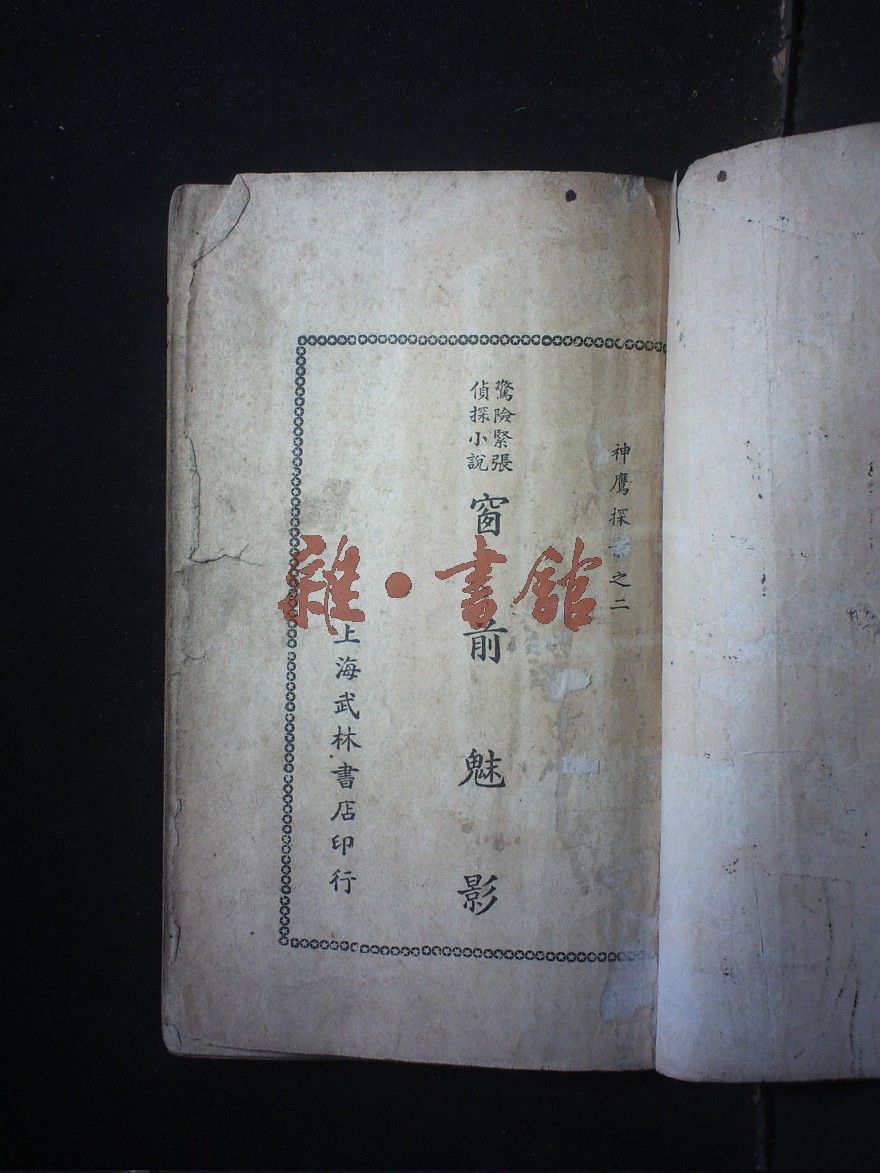 神鷹探案之二
驚險緊張
偵探小說
窗前魅影
上海武林書店印行
雜·書館